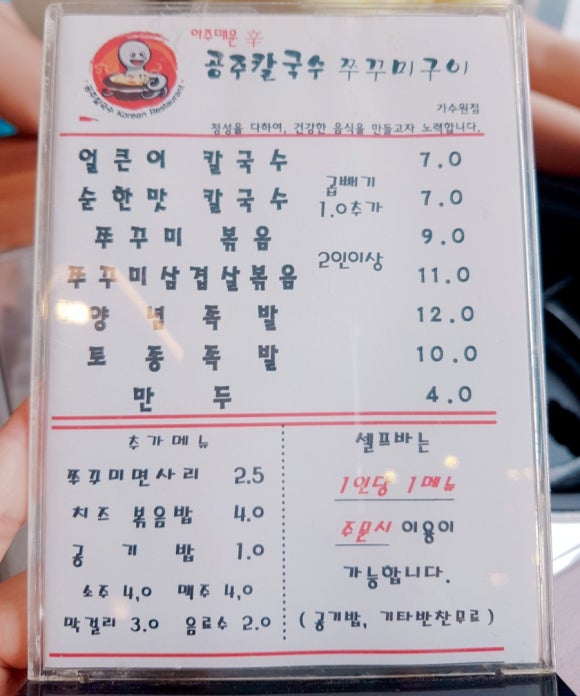 아주매운 辛
공주칼국수 쭈꾸미구이
공주칼국수 Korean Restaurant
가수원점
정성을 다하여, 건강한 음식을 만들고자 노력합니다.
얼큰이 칼국수 7.0
순한맛 칼국수 곱빼기 1.0추가 7.0
쭈꾸미 볶음 9.0
2인이상
쭈꾸미삼겹살볶음 11.0
양념족발 12.0
토종족발 10.0
만두 4.0
추가메뉴
쭈꾸미면사리 2.5
치즈 볶음밥 4.0
공기밥 1.0
소주 4,0 맥주 4,0
막걸리 3.0 음료수 2.0
셀프바는
1인당 1메뉴
주문시 이용이
가능합니다.
(공기밥, 기타반찬무료)